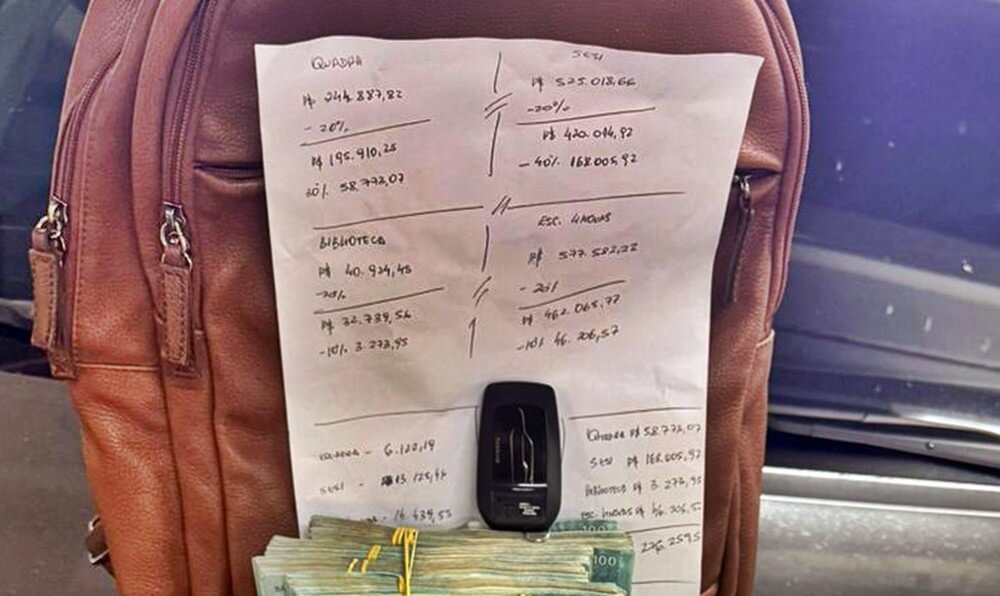 QUADRA
R$ 244.887,82
- 20%
R$ 195.910,25
30% 58.773,07
SESI
R$ 525.018,66
-20%
R$ 420.014,92
- 40% 168.005,92
BIBLIOTECA
R$ 40.924,45
-20%
R$ 32.739,56
-10% 3.273,95
ESC. 4 NOVAS
R$ 577.582,22
- 20%
R$ 462.065,77
-10% 46.206,57
- 6.122,19
SESI - 13.125,46
- 14.439,55
QUADRA R$ 58.773,07
SESI R$ 168.005,92
BIBLIOTECA R$ 3.273,95
ESC. NOVAS R$ 46.206,5
276.259,5
100
100